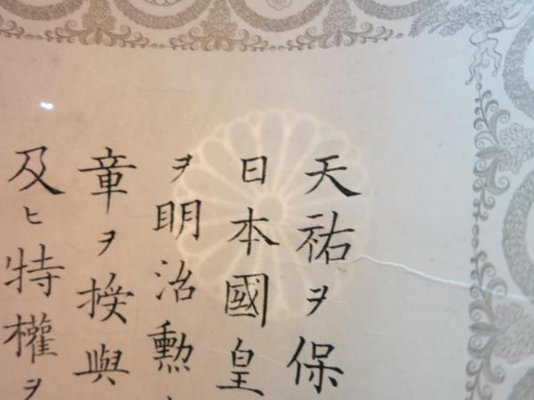 天祐ヲ保
日本國皇
ヲ明治勲
章ヲ授與
及ヒ特權ヲ